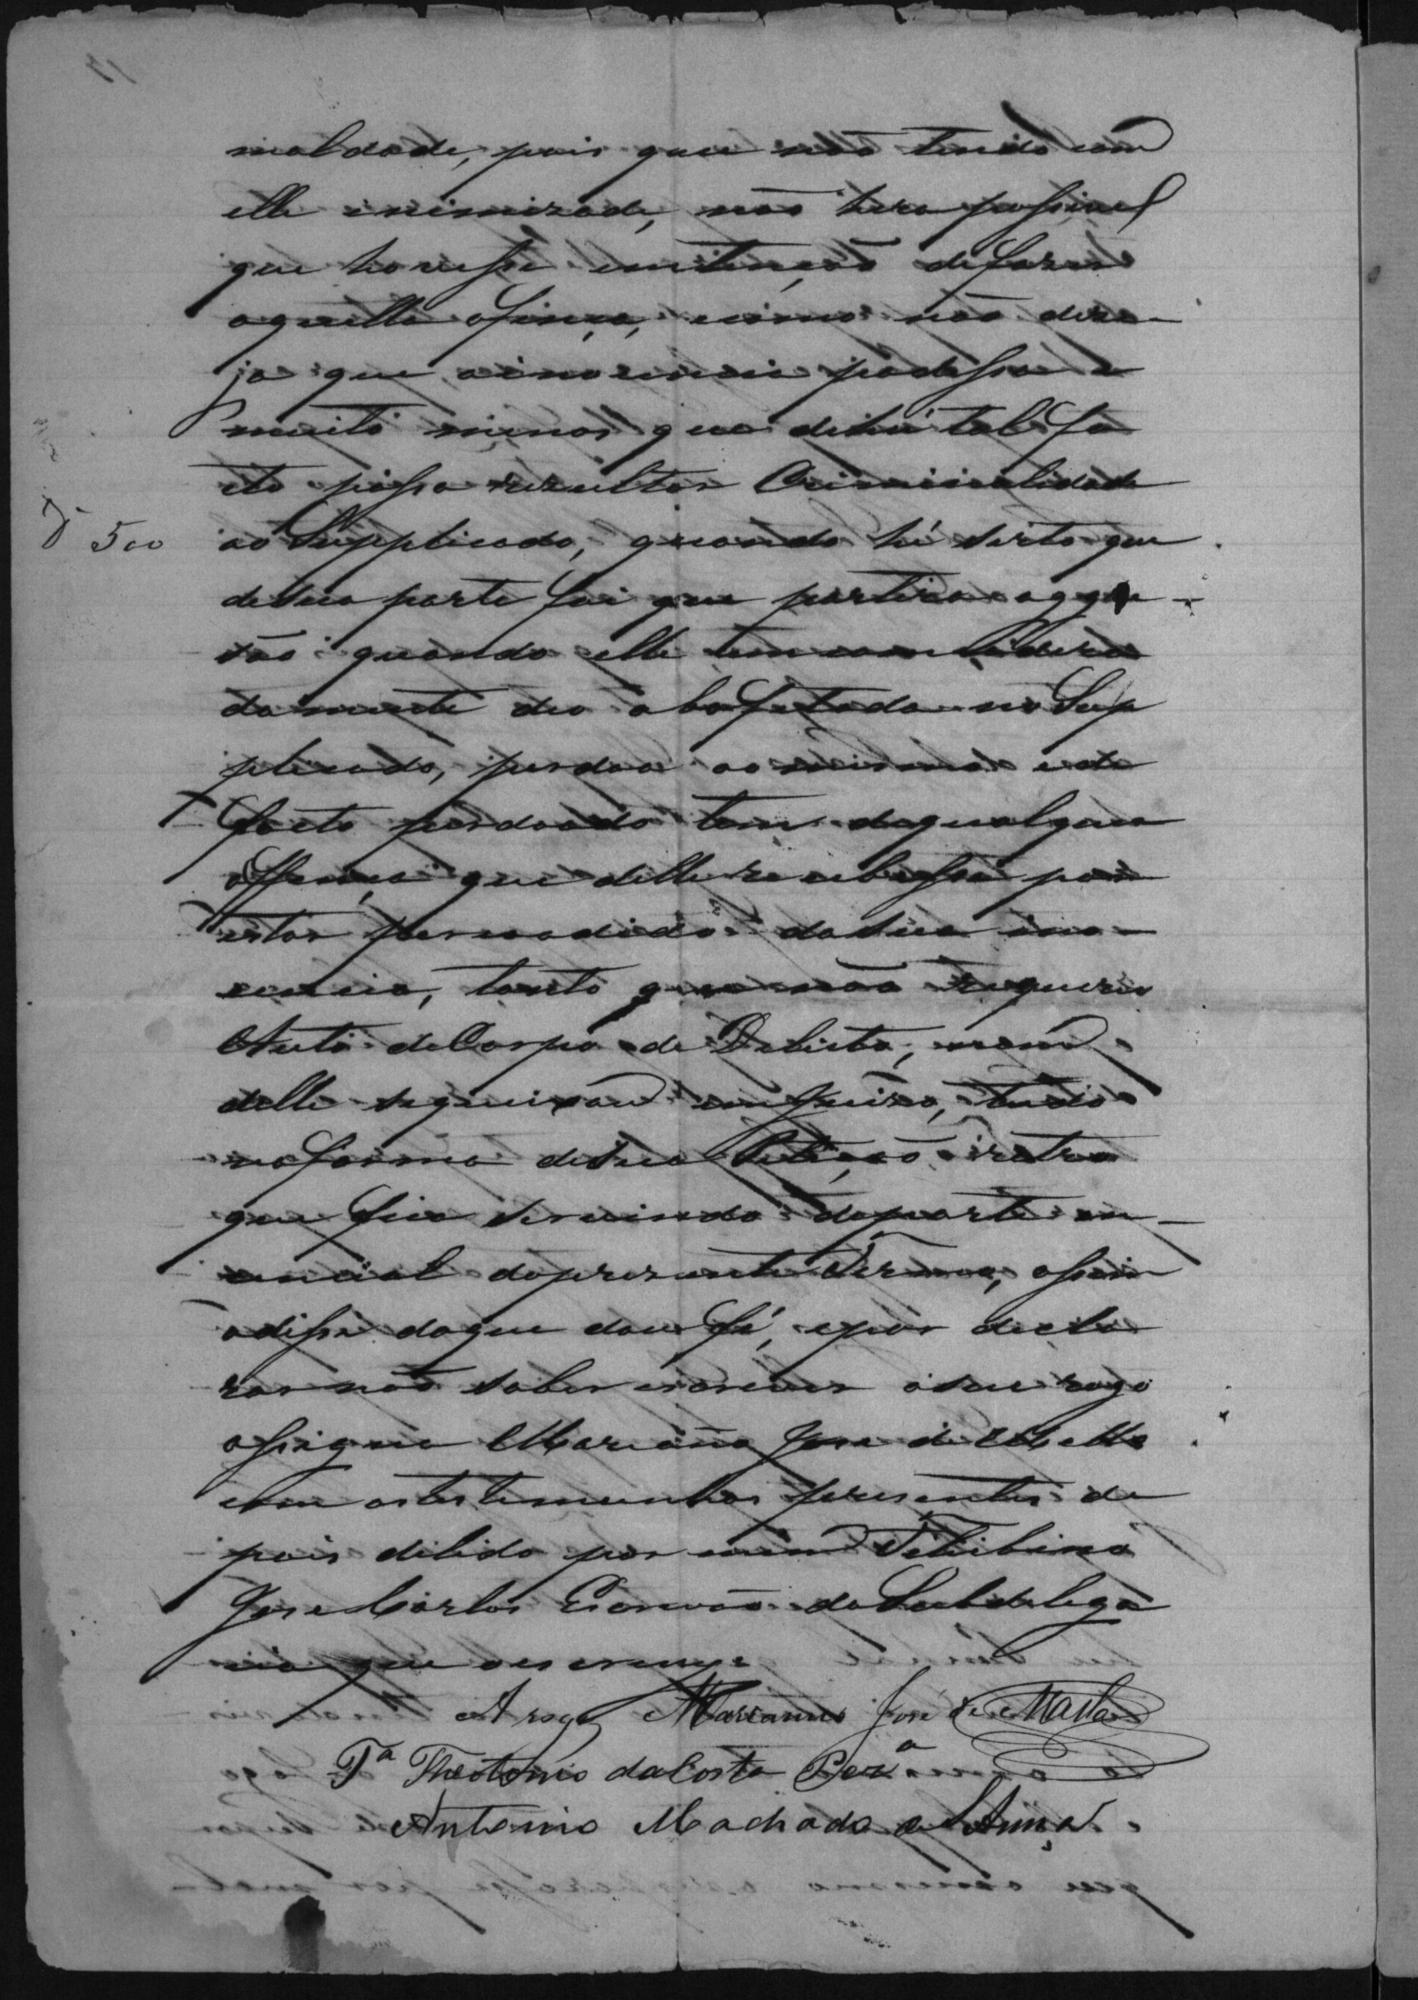 maldade, pois que não tendo com
elle inimizade, não hera possivel
que houvesse emtenção de fazer
aquella ofença, como não dese-
ja que a inocencia padessa e
muito menos que de hú tal fa
cto possa rezultar Criminalidade
ao Supplicado, quando hé serto que
de sua parte foi que partira a aggre-
são quando elle temcomsidera
damente deo a bofetada no Sup
plicado, perdoa ao mesmo e de
facto perdoado tem de qualquer
offença que delle recebesse por
estar persuadido da sua ino-
cencia, tanto que não requereo
Auto de Corpo de Delicto, nem
delle se queixou em Juizo, tudo
na forma de sua Petição retro
que fica servindo de parte en-
cencial do prezente Termo, assim
o disse do que dou fé, e por decla
rar não saber escrever a seu rogo
assigna Marianno Jose de Mello
com as testemunhas presentes de
pois de lido por mim
Jose Carlos Escrivão da Subdelega
cia que o escrevy.
A rogo Marianno José de Mello
Tª Theotonio da Costa Perª
Antonio Machado
D 500